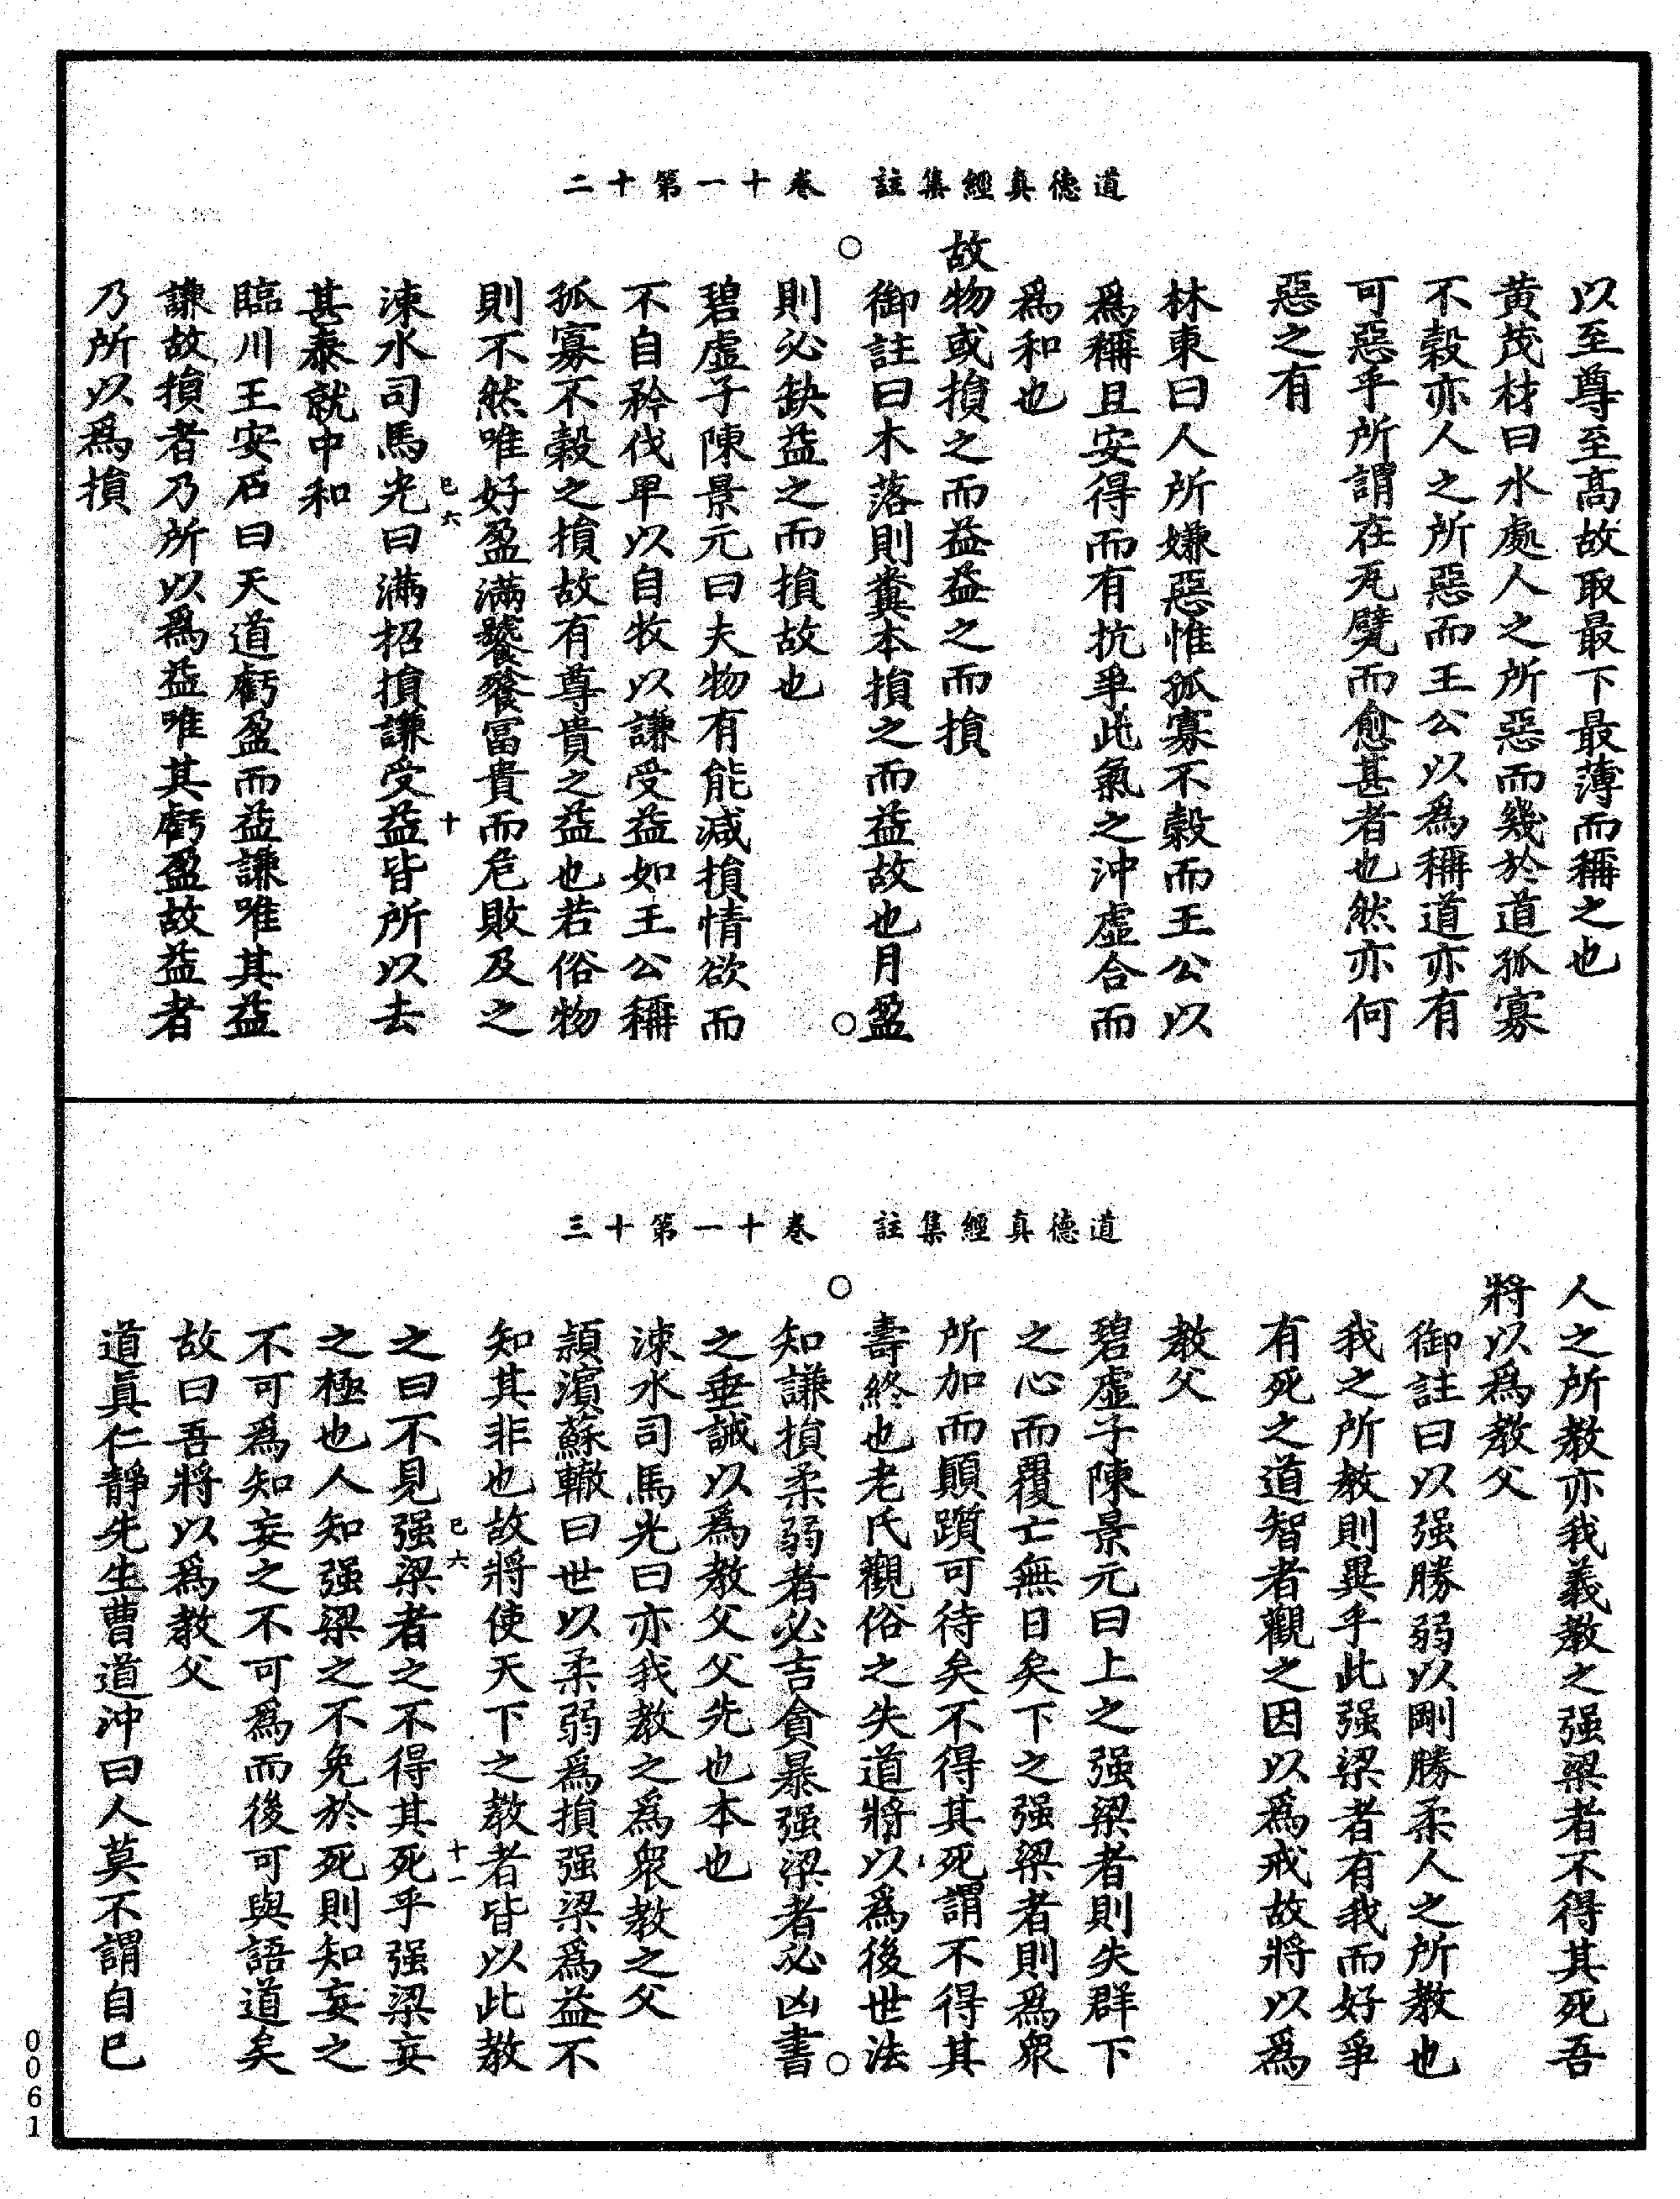 道德真經集註　卷十一第十二
以至尊至高故取最下最薄而稱之也
黃茂材曰水處人之所惡而幾於道孤寡
不穀亦人之所惡而王公以為稱道亦有
可惡乎所謂在瓦甓而愈甚者也然亦何
惡之有
林東曰人所嫌惡惟孤寡不穀而王公以
為稱且安得而有抗爭此氣之沖虛合而
為和也
故物或損之而益益之而損
御註曰木落則糞本損之而益故也月盈
則必缺益之而損故也
碧虛子陳景元曰夫物有能減損情欲而
不自矜伐卑以自牧以謙受益如王公稱
孤寡不穀之損故有尊貴之益也若俗物
則不然唯好盈滿饕餮富貴而危敗及之
已六　十
涑水司馬光曰滿招損謙受益皆所以去
甚泰就中和
臨川王安石曰天道虧盈而益謙唯其益
謙故損者乃所以為益唯其虧盈故益者
乃所以為損
道德真經集註　卷十一第十三
人之所教亦我義教之强梁者不得其死吾
將以為教父
御註曰以强勝弱以剛勝柔人之所教也
我之所教則異乎此强梁者有我而好爭
有死之道智者觀之因以為戒故將以為
教父
碧虛子陳景元曰上之强梁者則失群下
之心而覆亡無日矣下之强梁者則為衆
所加而顛躓可待矣不得其死謂不得其
壽終也老氏觀俗之失道將以為後世法
知謙損柔弱者必吉貪暴强梁者必凶書
之垂誡以為教父父先也本也
涑水司馬光曰亦我教之為衆教之父
潁濱蘇轍曰世以柔弱為損强梁為益不
知其非也故將使天下之教者皆以此教
已六　十一
之曰不見强梁者之不得其死乎强梁妄
之極也人知强梁之不免於死則知妄之
不可為知妄之不可為而後可與語道矣
故曰吾將以為教父
道真仁靜先生曹道沖曰人莫不謂自已
0061